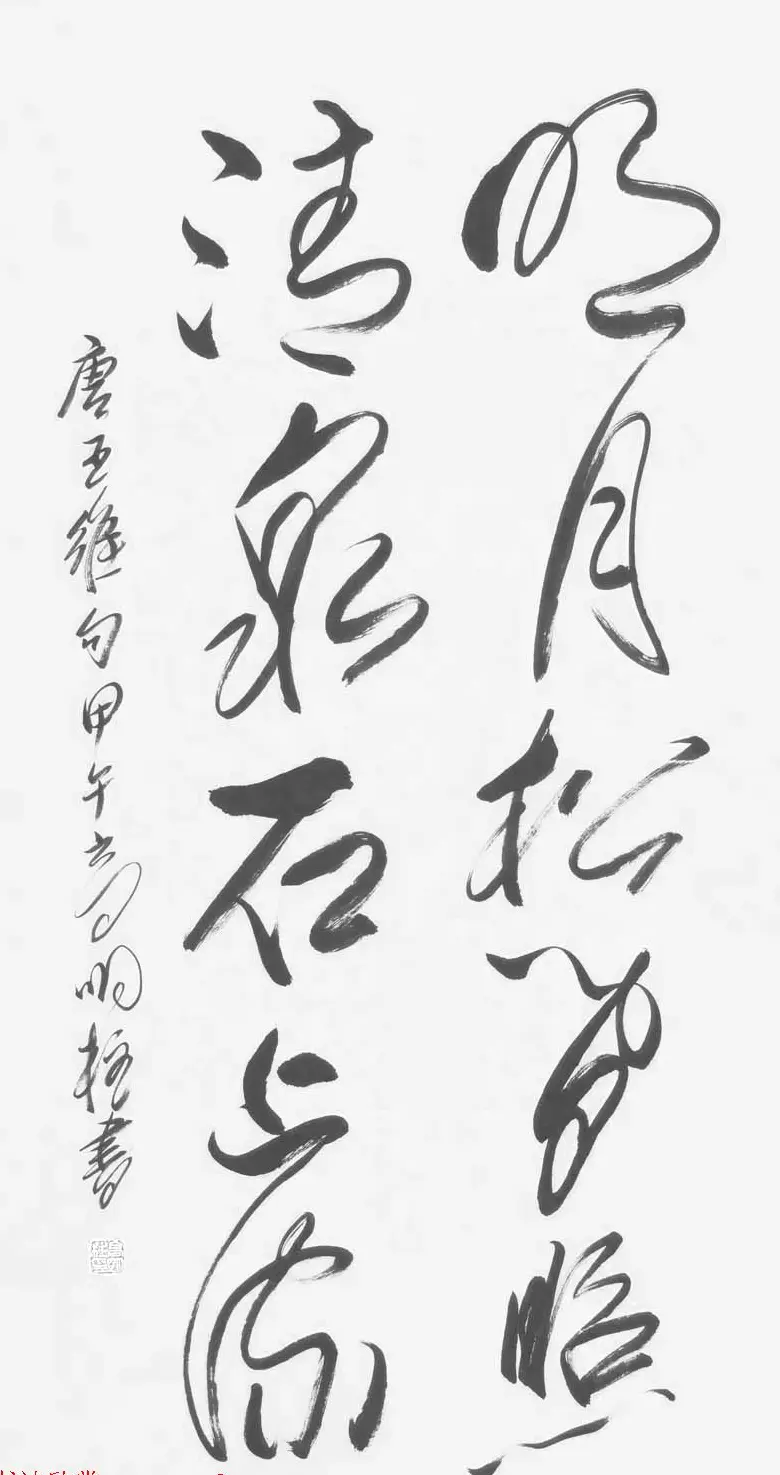 明月松间照
清泉石上流
唐王维句甲午高明柱书